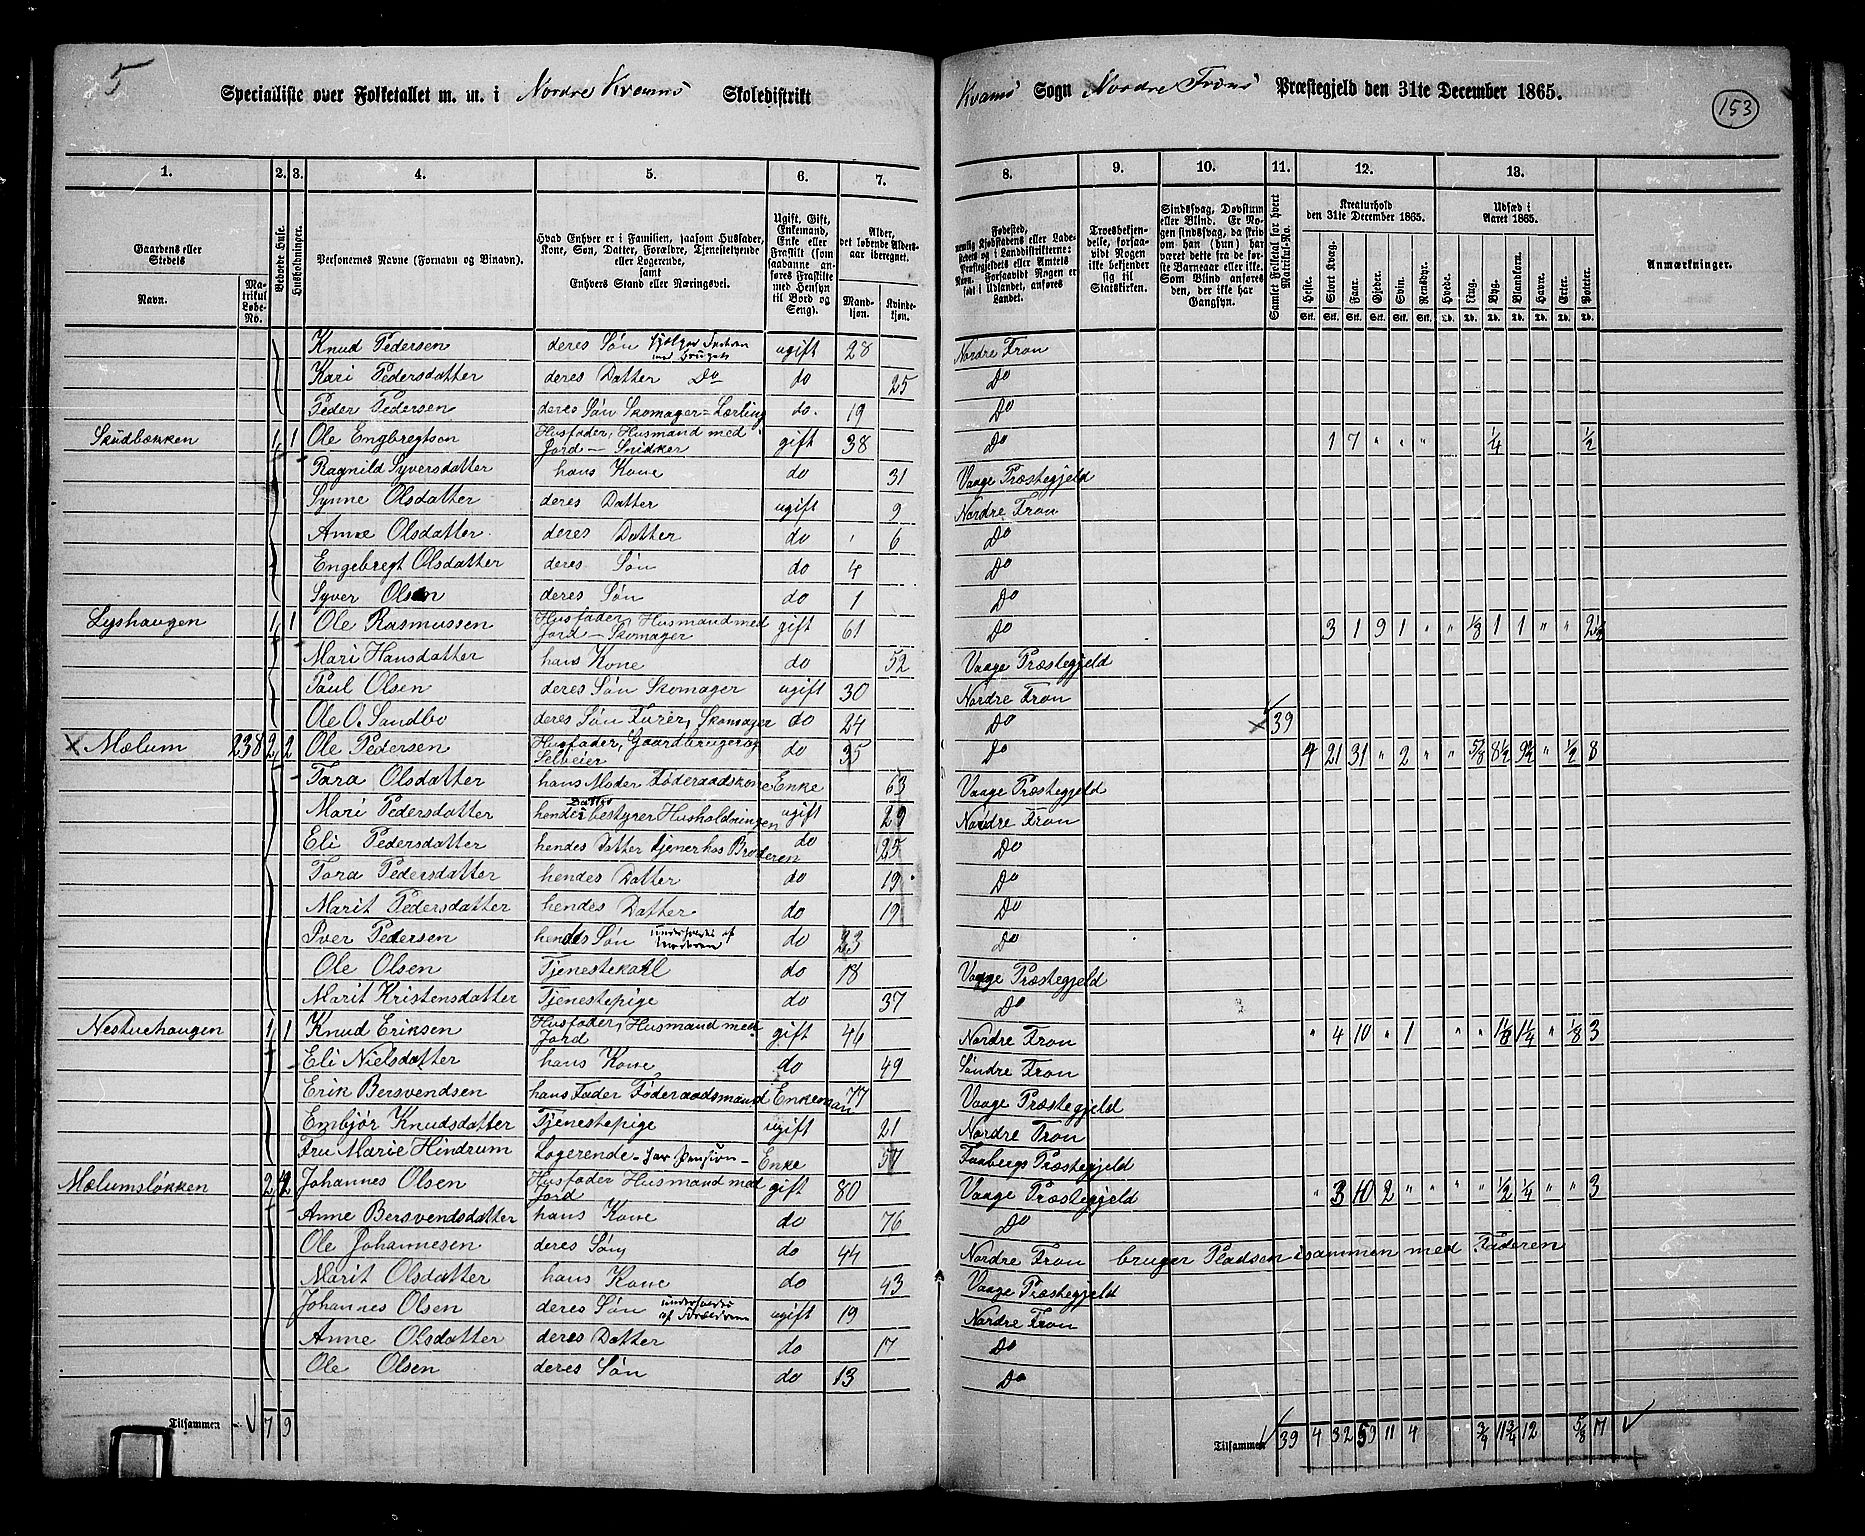 5
Specialliste over Folketallet m. m. i Nordre Kvams Skoledistrikt
Kvams Sogn Nordre Frons Præstegjeld den 31te December 1865.
153
1. 2. 3. 4. 5. 6. 7.
8. 9. 10. 11. 12. 13.
Gaardens eller Stedets
Navn.
Matrikul Løbe-No.
Beboede Huse.
Husholdninger.
Personernes Navne (Fornavn og Binavn).
Hvad Enhver er i Familien, saasom Husfader, Kone, Søn, Datter, Forældre, Tjenestetyende eller Logerende, samt Enhvers Stand eller Næringsvei.
Ugift, Gift, Enkemand, Enke eller Fraskilt (som saadanne anføres Fraskilte med Hensyn til Bord og Seng).
Alder, det løbende Alders-aar iberegnet.
Mandkjøn. Kvindekjøn.
Fødested,
Troesbekjendelse, forsaavidt Nogen ikke bekjender sig til Statskirken.
Sindssvag, Døvstum eller Blind. Er Nogen sindssvag, da skrives om han (hun) har været dette fra de første Barneaar eller ikke. Som Blind anføres den, der ikke har Gangsyn.
Samlet Folketal for hvert Matrikul-No.
Kreaturhold den 31te December 1865.
Udsæd i Aaret 1865.
Heste. Stort Kvæg. Faar. Gjeder. Svin. Rensdyr. Hvede. Rug. Byg. Blandkorn. Havre. Erter. Poteter.
Stk. Stk. Stk. Stk. Stk. Stk. Td. Td. Td. Td. Td. Td. Td.
Anmærkninger.
Knud Pedersen deres Søn ugift 28 Nordre Fron
Kari Pedersdatter deres Datter Do do 25 Do
Peder Pedersen deres Søn Skomager=Lærling do. 19 Do
Skudbækken 1 1 Ole Engbregtson Husfader, Husmand med Jord — Snidker gift 38 Do 1 7 " " " ¼ ½
Ragnild Syversdatter hans Kone do 31 Vaage Præstegjeld
Synne Olsdatter deres Datter ugift 9 Nordre Fron
Anne Olsdatter deres Datter do 6 Do
Engebregt Olsdatter deres Søn do 4 Do
Syver Olsen deres Søn do 1 Do
Lyshaugen 1 1 Ole Rasmussen Husfader, Husmand med Jord — Skomager gift 61 Do 3 1 9 1 " " ⅛ 1 1 " " 2½
Mari Hansdatter hans Kone do 52 Vaage Præstegjeld
Paul Olsen deres Søn Skomager ugift 30 Nordre Fron
Ole O. Sandbo deres Søn Furer, Skomager do 24 Do 39
X Mælum 238 2 2 Ole Pedersen Husfader, Gaardbruger og Selveier do 35 Do 4 21 31 " 2 " " ⅝ 8½ 9¼ " ½ 8
Tora Olsdatter hans Moder Føderaadskone Enke 63 Vaage Præstegjeld
Mari Pedersdatter hendes Datter bestyrer Husholdningen ugift 29 Nordre Fron
Eli Pedersdatter hendes Datter tjener hos Broderen do 25 Do
Tora Pedersdatter hendes Datter do 19 Do
Marit Pedersdatter hendes Datter do 19 Do
Iver Pedersen hendes Søn do 23 Do
Ole Olsen Tjenestekarl do 18 Vaage Præstegjeld
Marit Kristensdatter Tjenestepige do 37 Do
Nestuehaugen 1 1 Knud Eriksen Husfader, Husmand med Jord gift 46 Nordre Fron " 4 10 " 1 " " 1⅛ 1¼ " ⅛ 3
Eli Nielsdatter hans Kone do 49 Søndre Fron
Erik Bersvendsen hans Fader Føderaadsmand Enkeman 77 Vaage Præstegjeld
Embjør Knudsdatter Tjenestepige ugift 21 Nordre Fron
Fru Marie Hindrum Logerende – har Pension – Enke 57 Faabergs Præstegjeld
Mælumsløkken 2 2 Johannes Olsen Husfader Husmand med Jord gift 80 Vaage Præstegjeld " 3 10 2 " " " " ½ ¼ " " 3
Anne Bersvendsdatter hans Kone do 76 Do
Ole Johannesen deres Søn do 44 Nordre Fron bruger Pladsen isammen med Faderen
Marit Olsdatter hans Kone do 43 Vaage Præstegjeld
Johannes Olsen deres Søn ugift 19 Nordre Fron
Anne Olsdatter deres Datter do 17 Do
Ole Olsen deres Søn do 13 Do
Tilsammen 7 9
Tilsammen 39 4 32 59 11 4 ¾ 11¾ 12 ⅝ 17